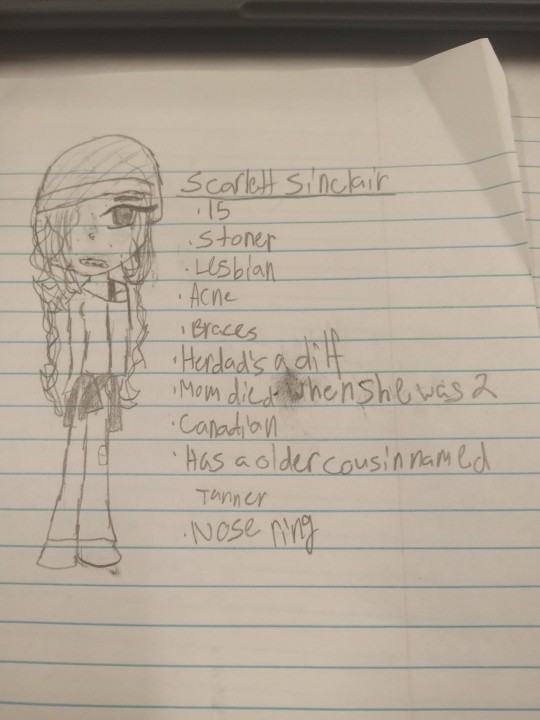 Scarlett Sinclair
· 15
· Stoner
· Lesbian
· Acne
· Braces
· Her dad's a dilf
· Mom died when she was 2
· Canadian
· Has a older cousin named
Tanner
· Nose ring